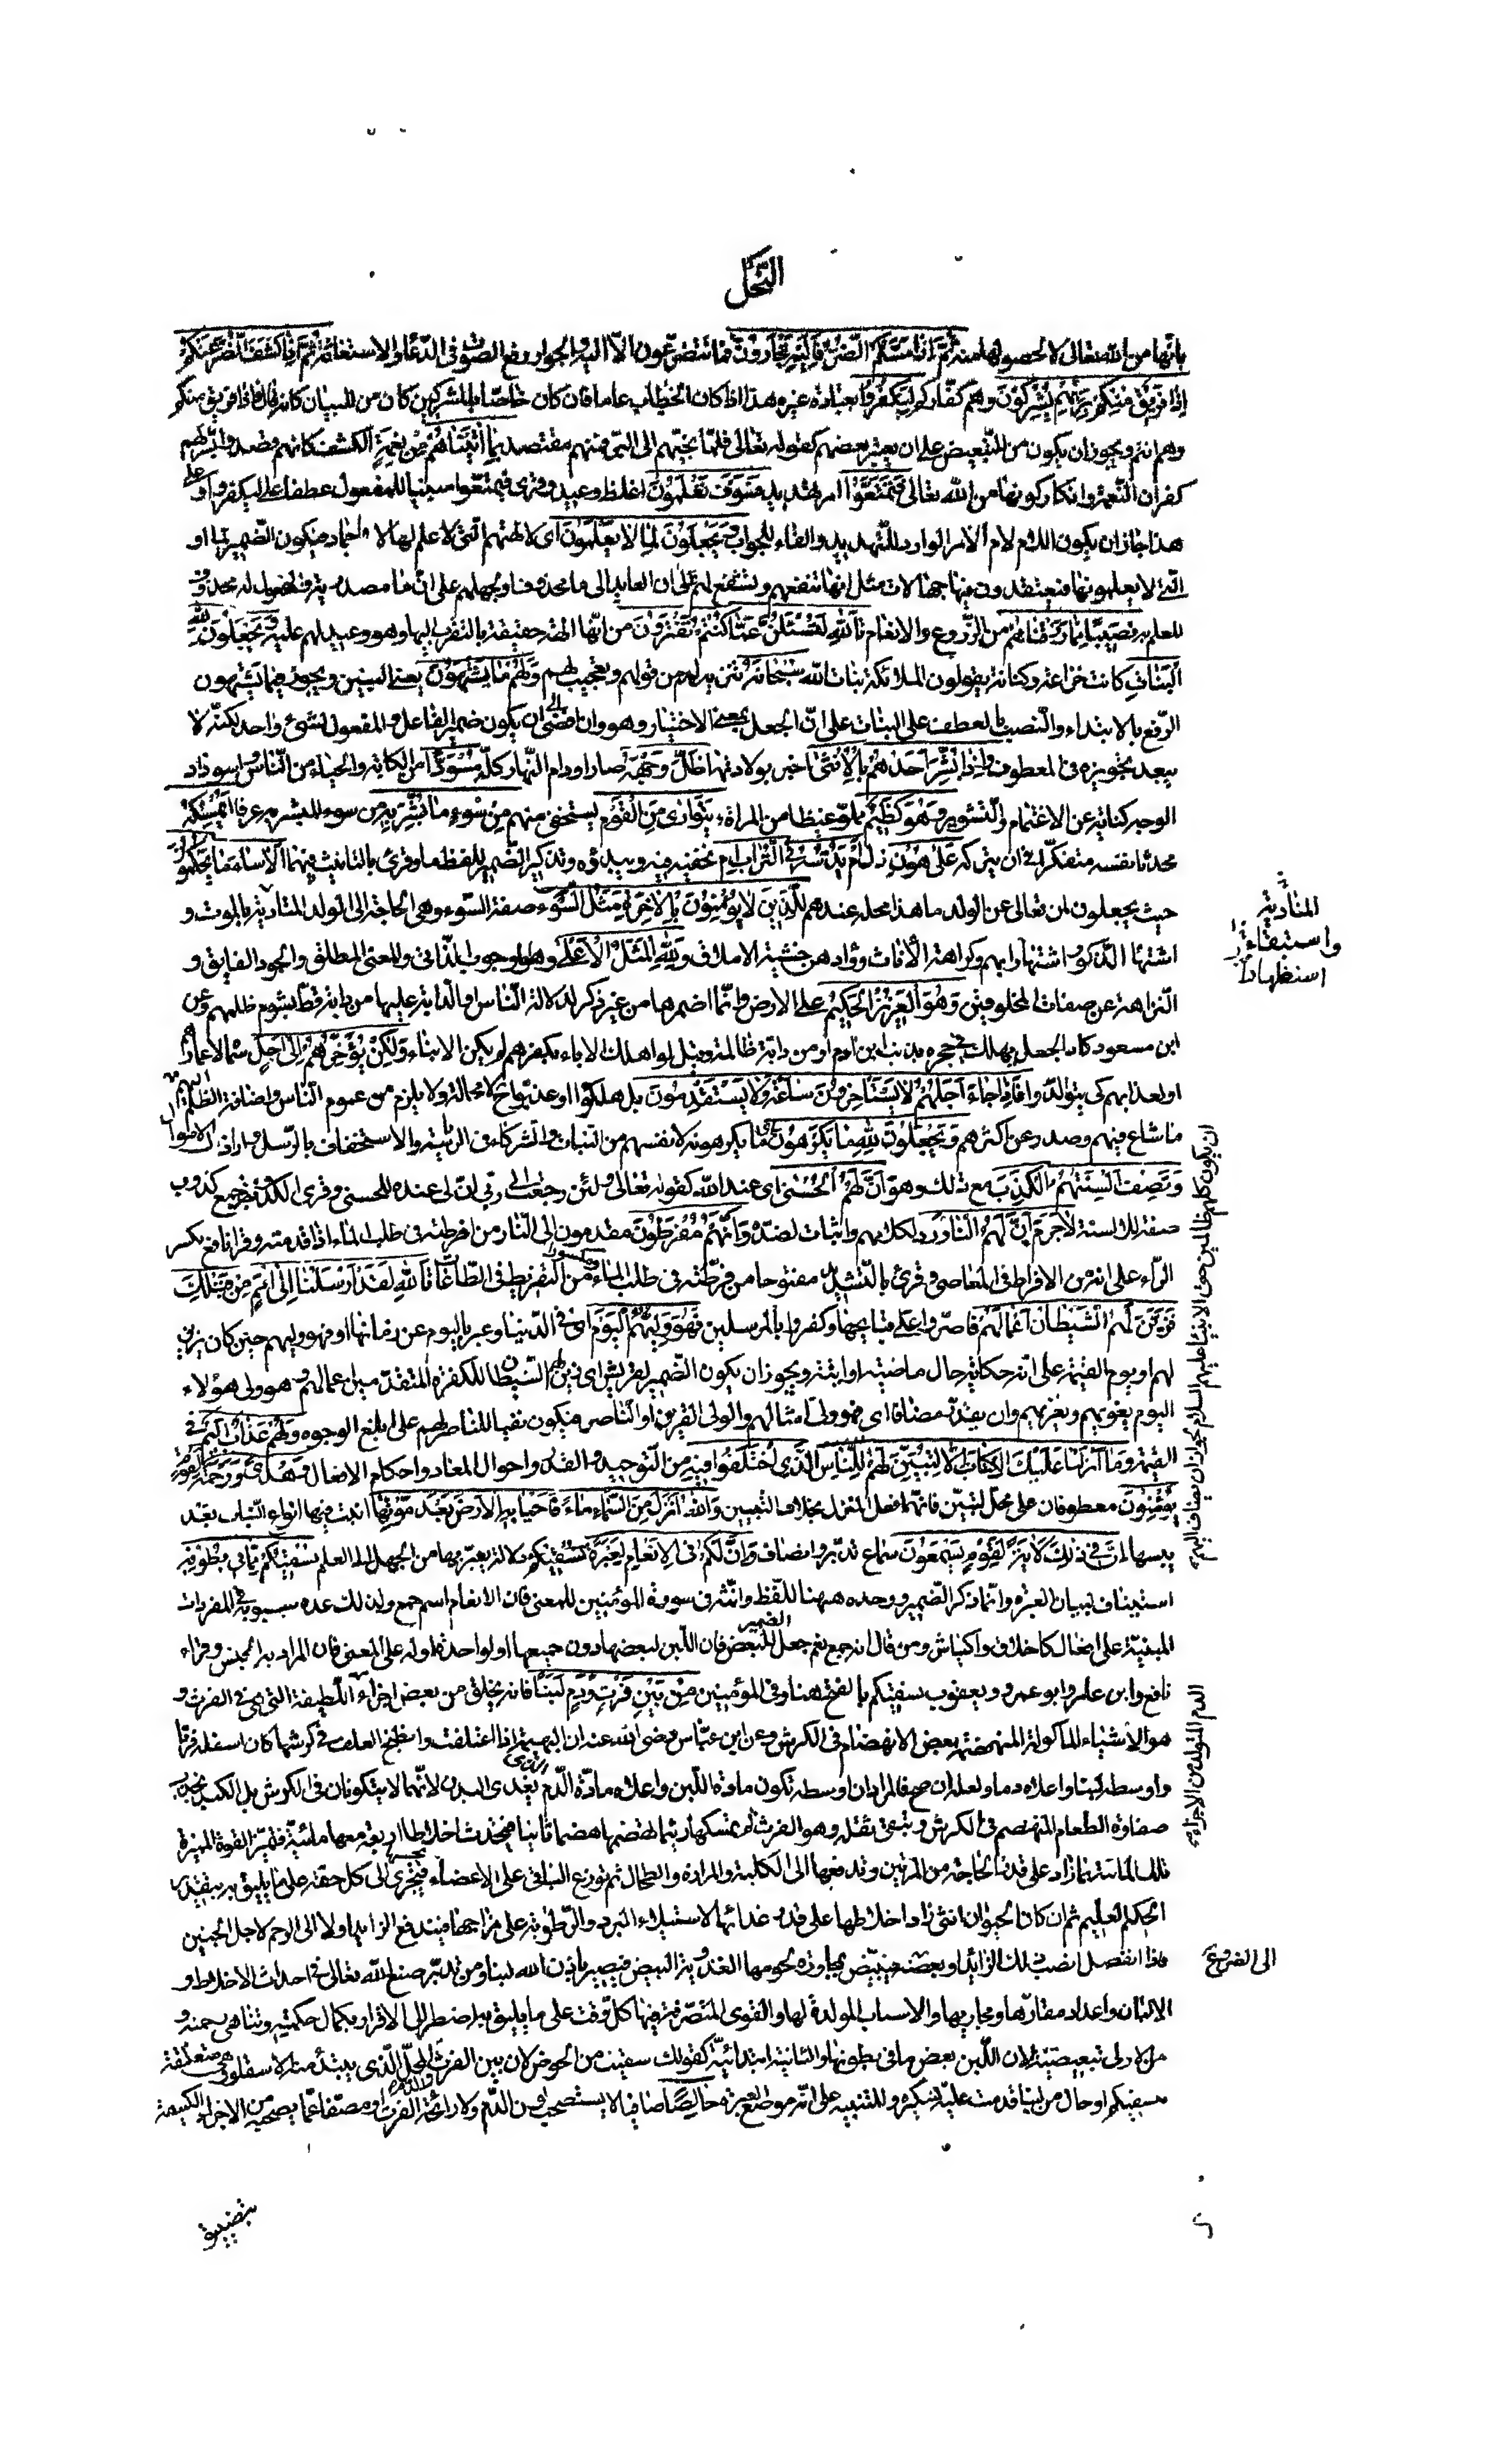 النحل
بانها من الله تعالى لا لحصولها منه ثُمَّ إِذَا مَسَّكُمُ الضُّرُّ فَإِلَيْهِ تَجْأَرُونَ فما تتضرعون الا اليه والجوار رفع الصوت فى الدعاء والاستغاثة ثُمَّ إِذَا كَشَفَ الضُّرَّ عَنْكُمْ
إِذَا فَرِيقٌ مِنْكُمْ بِرَبِّهِمْ يُشْرِكُونَ وهم كفاركم لِيَكْفُرُوا بعبادة غيره هذا اذا كان الخطاب عاما فان كان خاصا بالمشركين كان من للبيان كانه قال فاذا فريق منكم
وهم انتم ويجوز ان يكون من للتبعيض على ان يعتبر بعضهم كقوله تعالى فلما نجيهم الى البر فمنهم مقتصد بِمَا آتَيْنَاهُمْ من نعمة الكشف كانهم قصدوا بشركهم
كفران النعمة وانكار كونها من الله تعالى فَتَمَتَّعُوا امر تهديد فَسَوْفَ تَعْلَمُونَ اغلظ وعيد وقرئ فيمتعوا مبنيا للمفعول عطفا على ليكفروا وعلى
هذا جاز ان يكون اللام لام الامر الوارد للتهديد والفاء للجواب وَيَجْعَلُونَ لِمَا لَا يَعْلَمُونَ اى لالهتهم التى لا علم لها لانها جماد فيكون الضمير لما او
التى لا يعلمونها فيعتقدون فيها جهالات مثل انها تنفعهم وتشفع لهم على ان العايد الى ما محذوف او لجهلهم على ان ما مصدرية والمجعول له محذوف
للعلم به نَصِيبًا مِمَّا رَزَقْنَاهُمْ من الزروع والانعام تَاللهِ لَتُسْئَلُنَّ عَمَّا كُنْتُمْ تَفْتَرُونَ من انها الهة حقيقة بالتقرب اليها وهو وعيد لهم عليه وَيَجْعَلُونَ لله
الْبَنَاتِ كانت خزاعة وكنانة يقولون الملائكة بنات الله سُبْحَانَهُ تنزيه له من قولهم وتعجيب لهم وَلَهُمْ مَا يَشْتَهُونَ يعنى البنين ويجوز فيما يشتهون
الرفع بالابتداء والنصب بالعطف على البنات على ان الجعل بمعنى الاختيار وهو وان افضى الى ان يكون ضمير الفاعل والمفعول لشئ واحد لكنه لا
يبعد تجويزه فى المعطوف وَإِذَا بُشِّرَ أَحَدُهُمْ بِالْأُنْثَى اخبر بولادتها ظَلَّ وَجْهُهُ صار او دام النهار كله مُسْوَدًّا من الكابة والحياء من الناس واسوداد
الوجه كناية عن الاغتمام والتشوير وَهُوَ كَظِيمٌ مملو غيظا من المراة يَتَوَارَى مِنَ الْقَوْمِ يستخفى منهم مِنْ سُوءِ مَا بُشِّرَ بِهِ من سوء المبشر به عرفا أَيُمْسِكُهُ
محدثا نفسه متفكرا فى ان يتركه عَلَى هُونٍ ذل أَمْ يَدُسُّهُ فِي التُّرَابِ ام يخفيه فيه ويئده وتذكير الضمير للفظ ما وقرئ بالتانيث فيهما أَلَا سَاءَ مَا يَحْكُمُونَ
حيث يجعلون لمن تعالى عن الولد ما هذا محله عندهم لِلَّذِينَ لَا يُؤْمِنُونَ بِالْآخِرَةِ مَثَلُ السَّوْءِ صفة السوء وهى الحاجة الى الولد المنادية بالموت و
اشتهاء الذكور استظهارا بهم وكراهة الاناث ووادهن خشية الاملاق وَلِلَّهِ الْمَثَلُ الْأَعْلَى وهو الوجوب الذاتى والغنى المطلق والجود الفايق و
النزاهة عن صفات المخلوقين وَهُوَ الْعَزِيزُ الْحَكِيمُ على الارض وانما اضمرها من غير ذكر لدلالة الناس والدابة عليها من دابة قط بشوم ظلمهم وعن
ابن مسعود كاد الجعل يهلك فى جحره بذنب ابن ادم او من دابة ظالمة وقيل لو اهلك الاباء بكفرهم لم يكن الابناء وَلَكِنْ يُؤَخِّرُهُمْ إِلَى أَجَلٍ مُسَمًّى لاعمارهم
او لعذابهم كى يتوالدوا فَإِذَا جَاءَ أَجَلُهُمْ لَا يَسْتَأْخِرُونَ سَاعَةً وَلَا يَسْتَقْدِمُونَ بل هلكوا او عذبوا ح لا محالة ولا يلزم من عموم الناس واضافة الظلم اليهم
ما شاع فيهم وصدر عن اكثرهم وَيَجْعَلُونَ لِلَّهِ مَا يَكْرَهُونَ اى ما يكرهونه لانفسهم من البنات والشركاء فى الرياسة والاستخفاف بالرسل واراذل الاموال
وَتَصِفُ أَلْسِنَتُهُمُ الْكَذِبَ مع ذلك وهو أَنَّ لَهُمُ الْحُسْنَى اى عند الله كقوله تعالى ولئن رجعت الى ربى ان لى عنده للحسنى وقرئ الكذب جمع كذوب
صفة للالسنة لَا جَرَمَ أَنَّ لَهُمُ النَّارَ رد لكلامهم واثبات لضده وَأَنَّهُمْ مُفْرَطُونَ مقدمون الى النار من افرطته فى طلب الماء اذا قدمته وقرا نافع بكسر
الراء على انه من الافراط فى المعاصى وقرئ بالتشديد مفتوحا من فرطته فى طلب الماء ومكسورا من التفريط فى الطاعات تَاللهِ لَقَدْ أَرْسَلْنَا إِلَى أُمَمٍ مِنْ قَبْلِكَ
فَزَيَّنَ لَهُمُ الشَّيْطَانُ أَعْمَالَهُمْ فاصروا على قبايحها وكفروا بالمرسلين فَهُوَ وَلِيُّهُمُ الْيَوْمَ اى فى الدنيا وعبر باليوم عن زمانها او فهو وليهم حين كان يزين
لهم او يوم القيمة على انه حكاية حال ماضية او اتية ويجوز ان يكون الضمير لقريش اى زين لهم الشيطان للكفرة المتقدمين اعمالهم وهو ولى هؤلاء
اليوم يغويهم ويغريهم وان يقدر مضاف اى فهو ولى امثالهم والولى القرين او الناصر فيكون نفيا للناصر لهم على ابلغ الوجوه وَلَهُمْ عَذَابٌ أَلِيمٌ فى
القيمة وَمَا أَنْزَلْنَا عَلَيْكَ الْكِتَابَ إِلَّا لِتُبَيِّنَ لَهُمُ للناس الَّذِي اخْتَلَفُوا فِيهِ من التوحيد والقدر واحوال المعاد واحكام الافعال وَهُدًى وَرَحْمَةً لِقَوْمٍ
يُؤْمِنُونَ معطوفان على محل لتبين فانهما فعلا المنزل بخلاف التبيين وَاللهُ أَنْزَلَ مِنَ السَّمَاءِ مَاءً فَأَحْيَا بِهِ الْأَرْضَ بَعْدَ مَوْتِهَا انبت فيها انواع النبات بعد
يبسها إِنَّ فِي ذَلِكَ لَآيَةً لِقَوْمٍ يَسْمَعُونَ سماع تدبر وانصاف وَإِنَّ لَكُمْ فِي الْأَنْعَامِ لَعِبْرَةً دلالة يعبر بها من الجهل الى العلم نُسْقِيكُمْ مِمَّا فِي بُطُونِهِ
استيناف لبيان العبرة وانما ذكر الضمير ووحده ههنا للفظ وانثه فى سورة المؤمنين للمعنى فان الانعام اسم جمع ولذلك عده سيبويه فى المفردات
المبنية على افعال كاخلاق واكياش ومن قال انه جمع نعم جعل الضمير للبعض فان اللبن لبعضها دون جميعها او لواحده او له على المعنى فان المراد به الجنس وقراء
نافع وابن عامر وابو عمرو ويعقوب نسقيكم بالفتح هنا وفى المؤمنين مِنْ بَيْنِ فَرْثٍ وَدَمٍ لَبَنًا فانه يخلق من بعض اجزاء اللطيفة التى فى الفرث و
هو الاشياء الماكولة المنهضمة بعض الانهضام فى الكرش وعن ابن عباس رضى الله عنه ان البهيمة اذا اعتلفت وانطبخ العلف فى كرشها كان اسفله فرثا
واوسطه لبنا واعلاه دما ولعله ان صح فالمراد ان اوسطه تكون مادة اللبن واعلاه مادة الدم الذى يغذى البدن لانهما لا يتكونان فى الكرش بل الكبد يجذب
صفاوة الطعام المنهضم فى الكرش ويبقى ثفله وهو الفرث ثم يمسكها ريثما يهضمها هضما ثانيا فيحدث اخلاطا اربعة معها مائية فتميز القوة المميزة
تلك المائية بما زاد على قدر الحاجة من المرتين وتدفعها الى الكلية والمرارة والطحال ثم توزع الباقى على الاعضاء بحسبها فيجرى الى كل حقه على ما يليق به بتقدير
الحكيم العليم ثم ان كان الحيوان انثى زاد اخلاطها على قدر غذائها لاستيلاء البرد والرطوبة على مزاجها فيندفع الزايد اولا الى الرحم لاجل الجنين
فاذا انفصل انصب ذلك الزايد او بعضه فيبيض بمجاورة لحومها الغددية البيض فيصير باذن الله لبنا ومن تدبر صنع الله تعالى فى احداث الاخلاط و
الالبان واعداد مقارها ومجاريها والاسباب المولدة لها والقوى المتصرفة فيها كل وقت على ما يليق به اضطر الى الاقرار بكمال حكمته وتناهى رحمته و
من الاولى تبعيضية لان اللبن بعض ما فى بطونها والثانية ابتدائية كقولك سقيت من الحوض لان بين الفرث والدم المحل الذى يبتدأ منه الاسقاء وهى متعلقة
بنسقيكم او حال من لبنا قدمت عليه لتنكيره وللتنبيه على انه موضع العبرة خَالِصًا صافيا لا يستصحب لون الدم ولا رائحة الفرث او مصفى عما يصحبه من الاجزاء الكثيفة
المنادية
واستبقاء
استظهارا
ان يكون كلهم ظالمين حتى الانبياء عليهم السلام لجواز ان يضاف اليهم
الدم المتولد من الاجزاء
الى الضروع
بتضييق